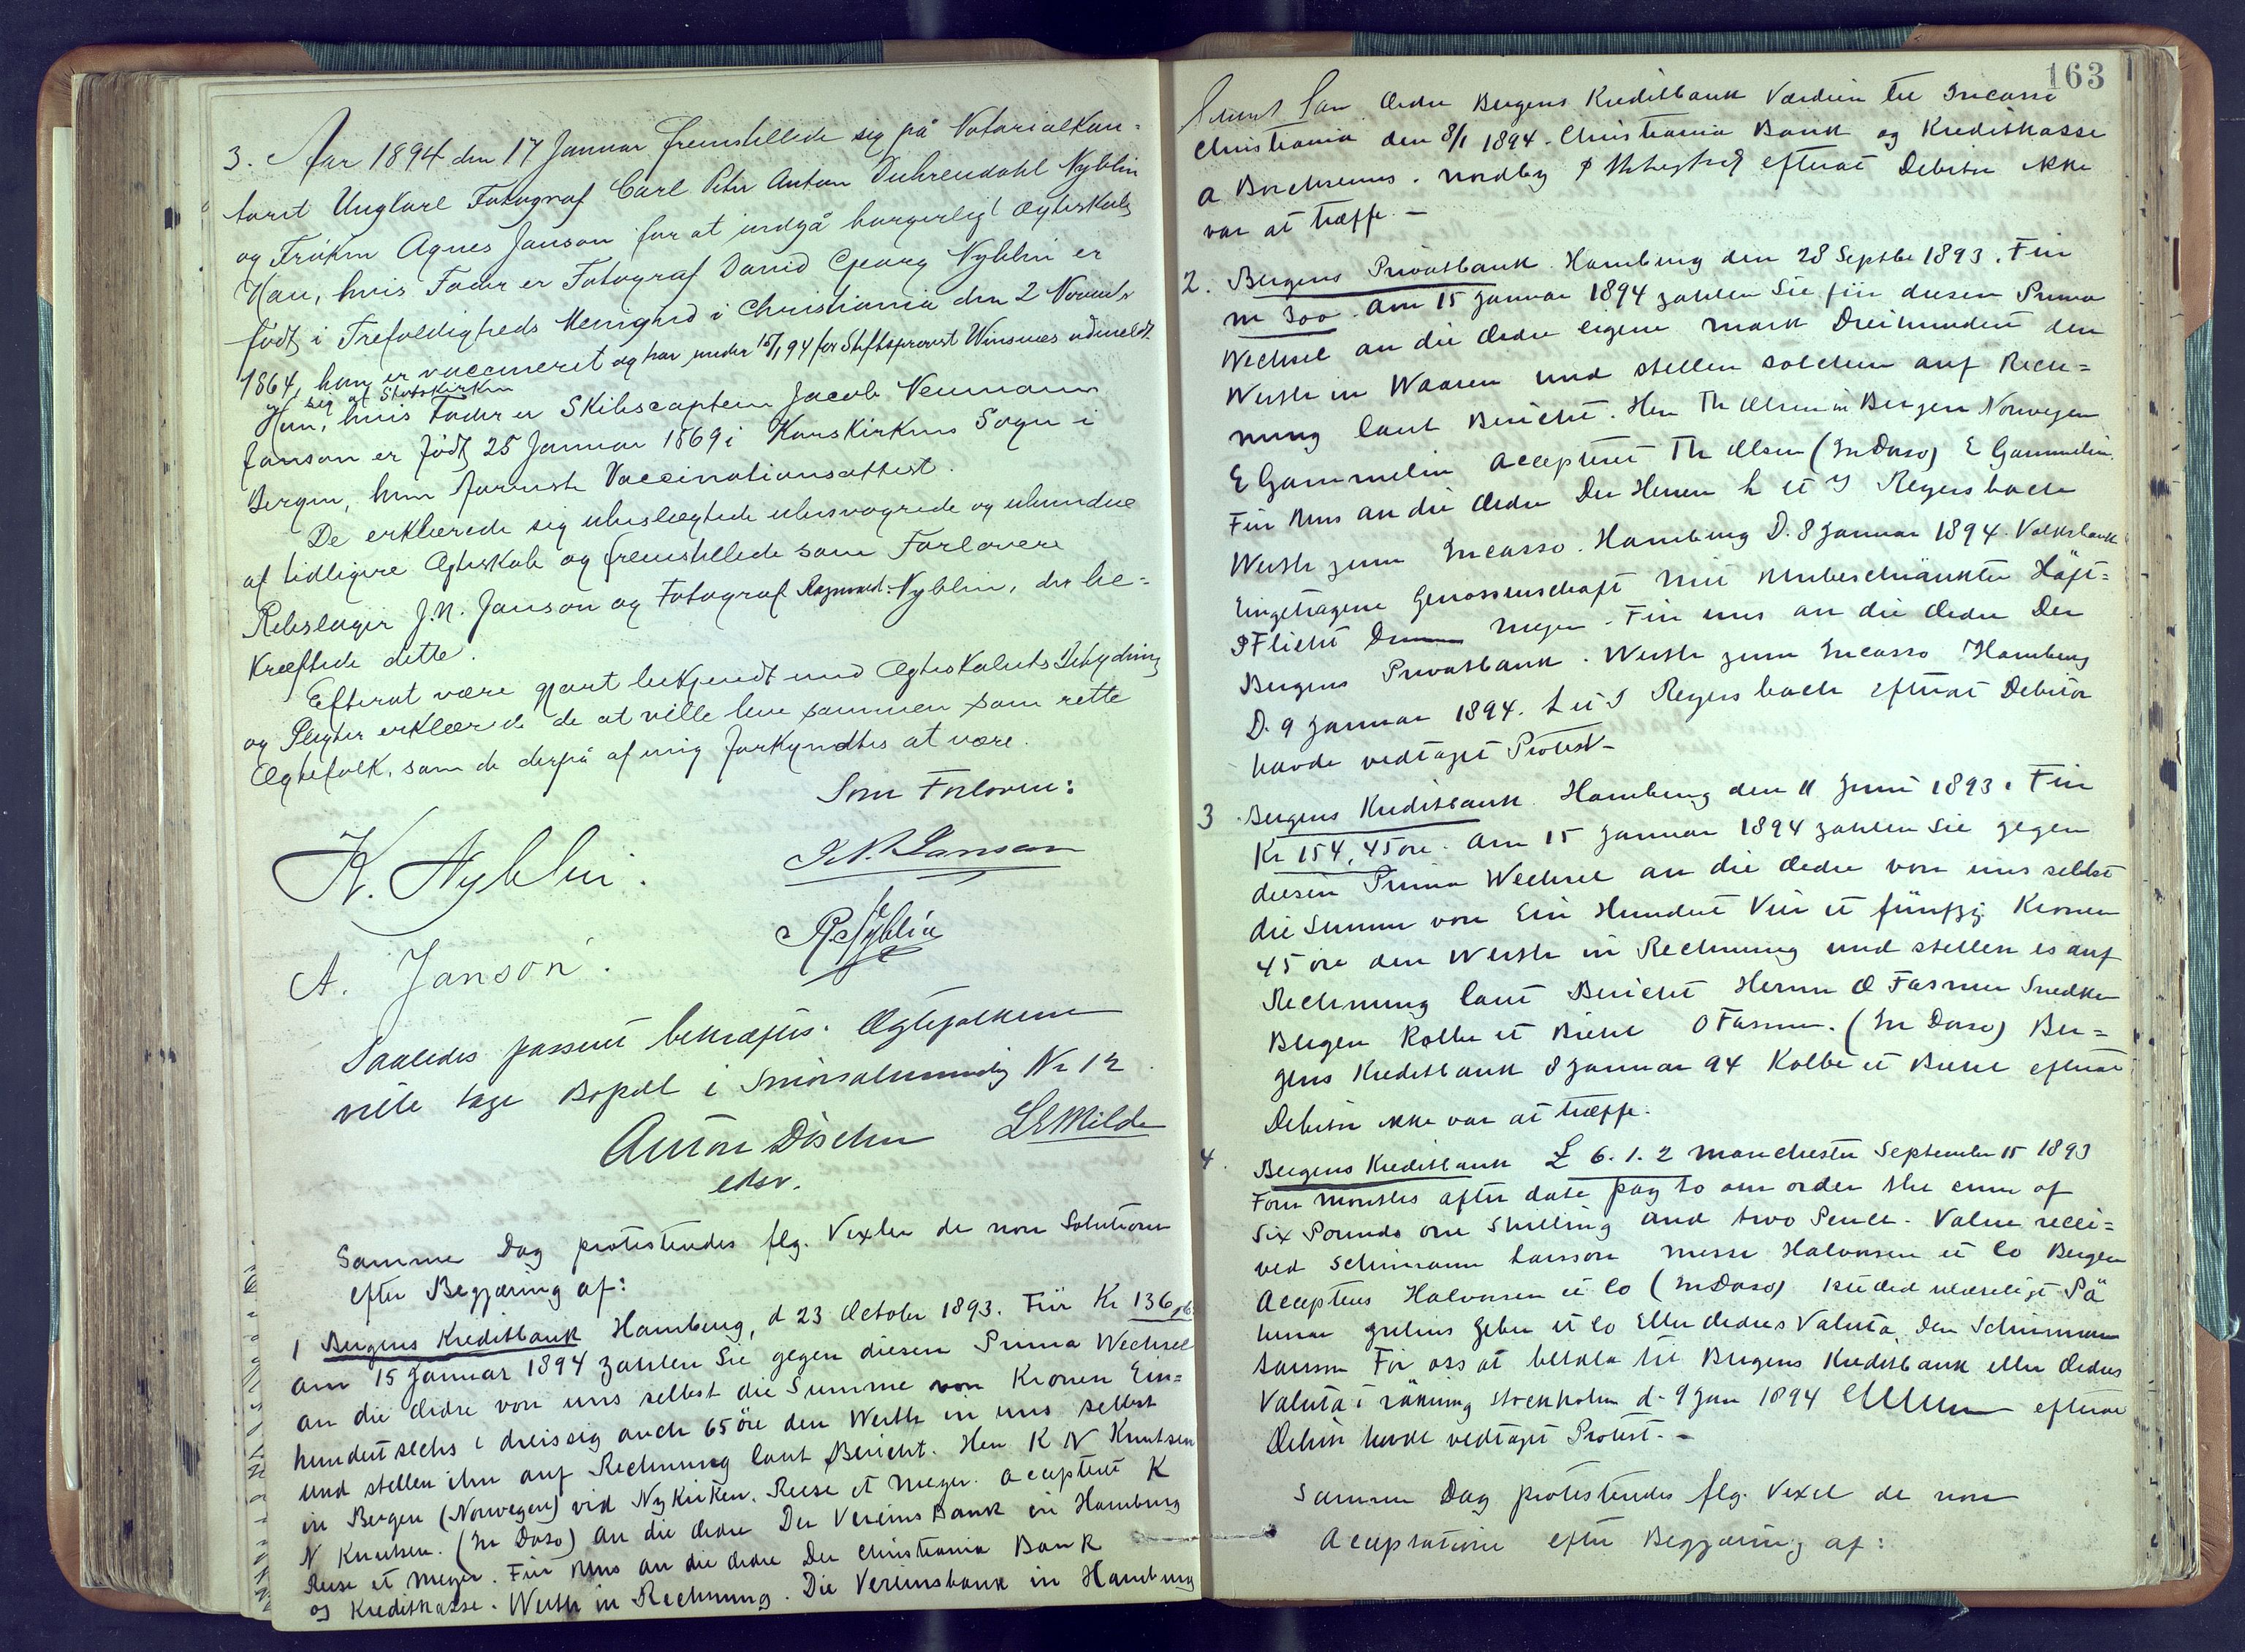 3. Aar 1894 den 17 Januar fremstillede sig på Notarialkon=
toret Ungkarl Fotograf Carl Peter Anton Duhrendahl Nyblin
og Frøken Agnes Janson for at indgå borgerligt Ægteskab
Han, hvis Fader er Fotograf Daniel Georg Nyblin er
født i Trefoldigheds Menighed i Christiania den 2 Novembr
1864, han er vaccineret og har under 15/1 94 for Stiftsprovst Winsnes udmeldt
sig af Statskirken
Hun, hvis Fader er Skibscaptein Jacob Neumann
Janson er født 25 Januar 1869 i Korskirkens Sogn i
Bergen, hun foreviste Vaccinationsattest.
De erklærede sig ubeslægtede ubesvogrede og ubundne
af tidligere Ægteskab og fremstillede som Forlovere
Rebslager J.N. Janson og Fotograf Ragnvald Nyblin, der be=
kræftede dette.
Efterat være gjort bekjendt med Ægteskabets Betydning
og Pligter erklærede de at ville leve sammen som rette
Ægtefolk, som de derpå af mig forkyndtes at være.
Som Forlovere:
K. Nyblin.
J.N. Janson
R. Nyblin
A. Janson.
Saaledes passeret bekræftes. Ægtefolkene
ville tage Bopæl i Smörsalmending No 12.
Anton Döscher
edsv.
L E Milde
Samme Dag protesteredes flg. Vexler de non Solutione
efter Begjæring af:
1 Bergens Kreditbank Hamburg, d 23 October 1893. Für Kr 136,65
am 15 Januar 1894 zahlen Sie gegen diesen Prima Wechsel
an die Ordre von uns selbst die Summe von Kronen Ein=
hundert sechs i dreissig auch 65 öre den Werth in uns selbst
und stellen ihn auf Rechnung laut Bericht. Herr K N Knutsen
in Bergen (Norwegen) vid Nykirken. Reese et Meyer. acceptert K
N Knutsen. (In Dorso) an die Ordre Der Vereins Bank in Hamburg
Reese et Meyer. Für Uns an die Ordre Der Christiania Bank
og Kreditkasse. Werth in Rechnung. Die Vereinsbank in Hamburg
163
Ordre Bergens Kreditbank Værdien til Incasso
Christiania den 8/1 1894. Christiania Bank og Kreditkasse
a Borchsenius. Nordby efterat Debitor ikke
var at træffe. -
2. Bergens Privatbank. Hamburg den 28 Septbr 1893. Für
M 300. Am 15 Januar 1894 zahlen Sie für diesen Prima
Wechsel an die Ordre eigene Mark Dreihundert den
Werth in Waaren und stellen solchen auf Rech=
nung laut Bericht. Herr Th Olsen in Bergen Norwegen
E Gammelin acceptert Th Olsen (In Dorso) E Gammelin.
Für Uns an die Ordre Der Herren L et I Regersbach
Werth zum Incasso. Hamburg D. 8 Januar 1894. Volksbank
Eingetragene Genossenschaft mit Unbeschränkter Haft=
Pflicht Meyer. Für uns an die Ordre Der
Bergens Privatbank. Werth zum Incasso Hamburg
D. 9 Januar 1894. L et I Regersbach efterat Debitor
havde vedtaget Protest -
3 Bergens Kreditbank. Hamburg den 11 Juni 1893. Für
Kr 154,45 öre. Am 15 Januar 1894 zahlen Sie gegen
diesen Prima Wechsel an die Ordre von uns selbst
die Summe von Ein Hundert Vier et fünfzig Kronen
45 öre den Werth in Rechnung und stellen es auf
Rechnung laut Bericht Herrn O Fasmer Snedker
Bergen Kolbe et Biehl O Fasmer. (In Dorso) Ber=
gens Kreditbank 8 Januar 94 Kolbe et Biehl efterat
Debitor ikke var at træffe.
4. Bergens Kreditbank £ 6.1.2 Manchester September 15 1893
Four months after date pay to our order the sum of
Six Pounds one Shilling and two Pence. Value recei=
ved Schürmann Larsson Messr Halvorsen et Co Bergen
Accepteres Halvorsen et Co (In Dorso)
et Co Eller Ordres Valuta, den Schürmann
Larsson För oss at betala til Bergens Kreditbank eller Ordres
Valuta i räkning Stockholm d. 9 Jan 1894 efterat
Debitor havde vedtaget Protest. -
Samme Dag protesteredes flg. Vexel de non
Acceptatione efter Begjæring af: